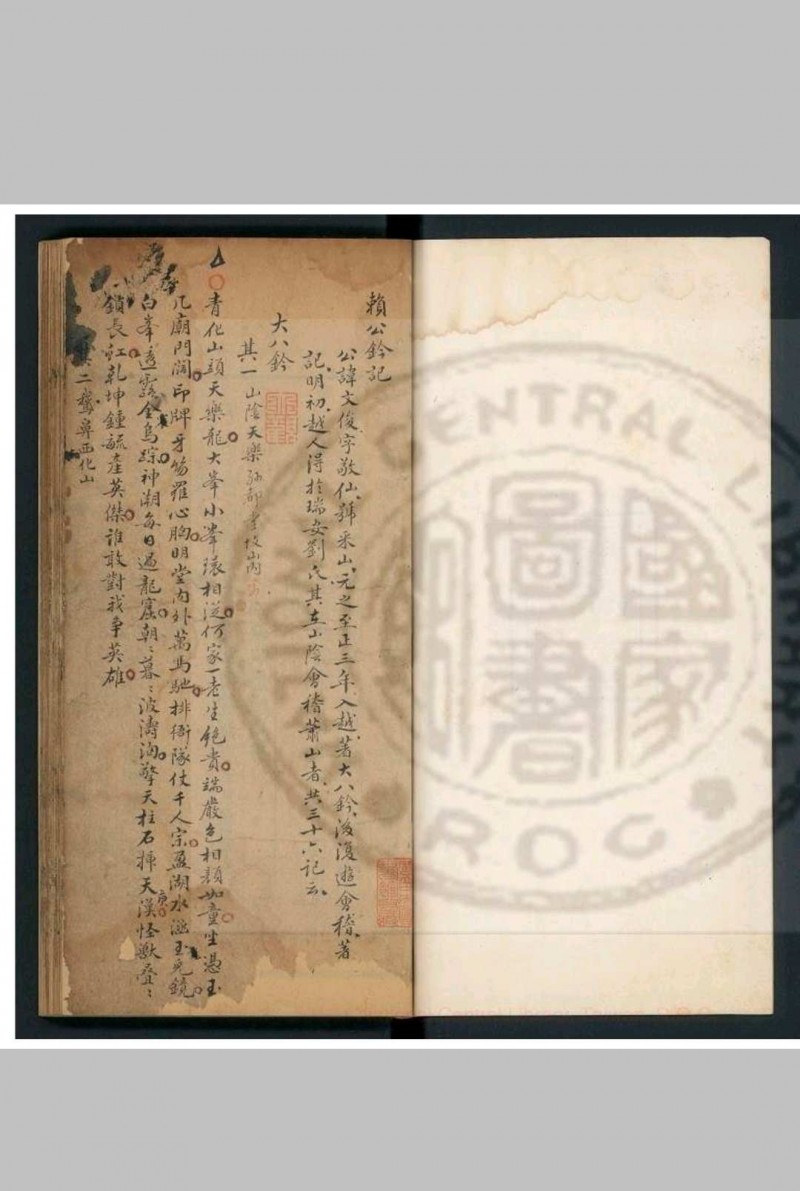 賴公鈐記
公諱文俊字敬仙號采山元之至正三年入越著大八鈐後復遊會稽著
記明初越人得於瑞安劉氏其在山陰會稽蕭山者共三十六記云
大八鈐
其一 山陰天樂 山內
青化山頭天樂龍大峯小峯環相從何家一老生絕貴端嚴色相顏如童坐憑玉
几廟門闊印牌牙笏羅心胸明堂內外萬馬馳排衙隊仗千人宗盈湖水涵玉兔鏡
白峯透露金烏踪神潮每日過龍窟朝〻暮〻波濤洶擎天柱石插天漢怪獸叠〻
鎖長虹乾坤鍾毓產英傑誰敢對我爭英雄
其二 鼻西化山
國家圖書
CENTRAL LIBRARY
ROC